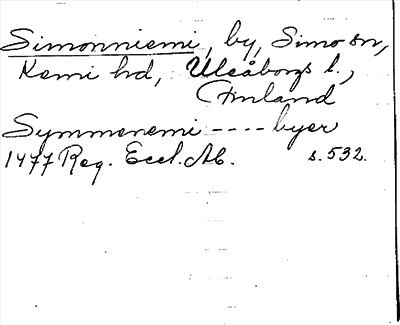 Simonniemi, by, Simo sn,
Kemi hd, Uleåborgs l.,
Finland
Symmenemi ---- byer
1477 Reg. Eccl. Ab. s. 532.